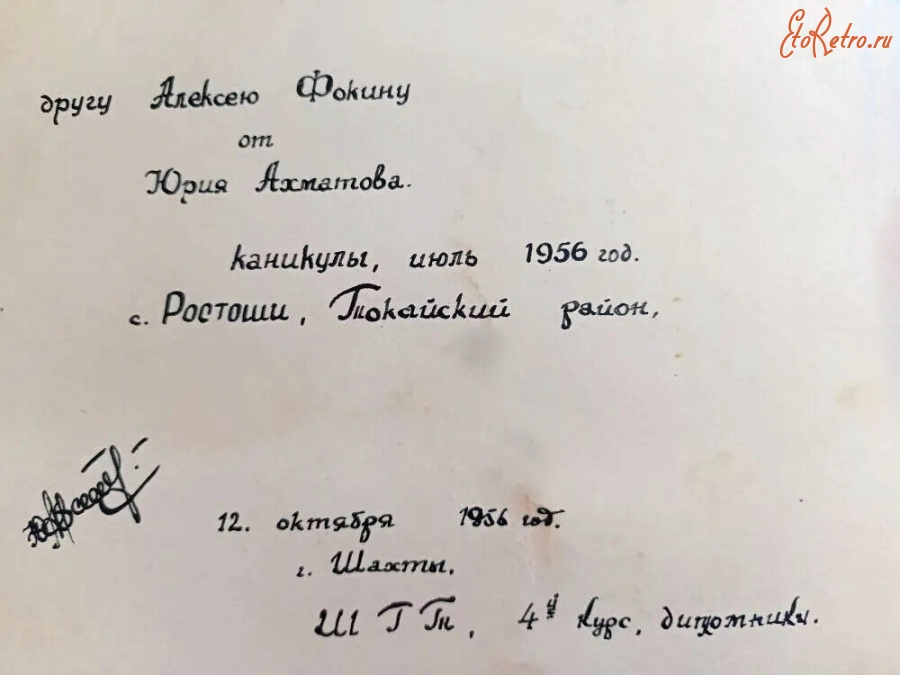 EtoRetro.ru
другу Алексею Фокину
от
Юрия Ахматова.
каникулы, июль 1956 год.
с. Ростоши, Токайский район,
12. октября 1956 год.
г. Шахты.
Ш Г Т, 4й курс, дипломники.